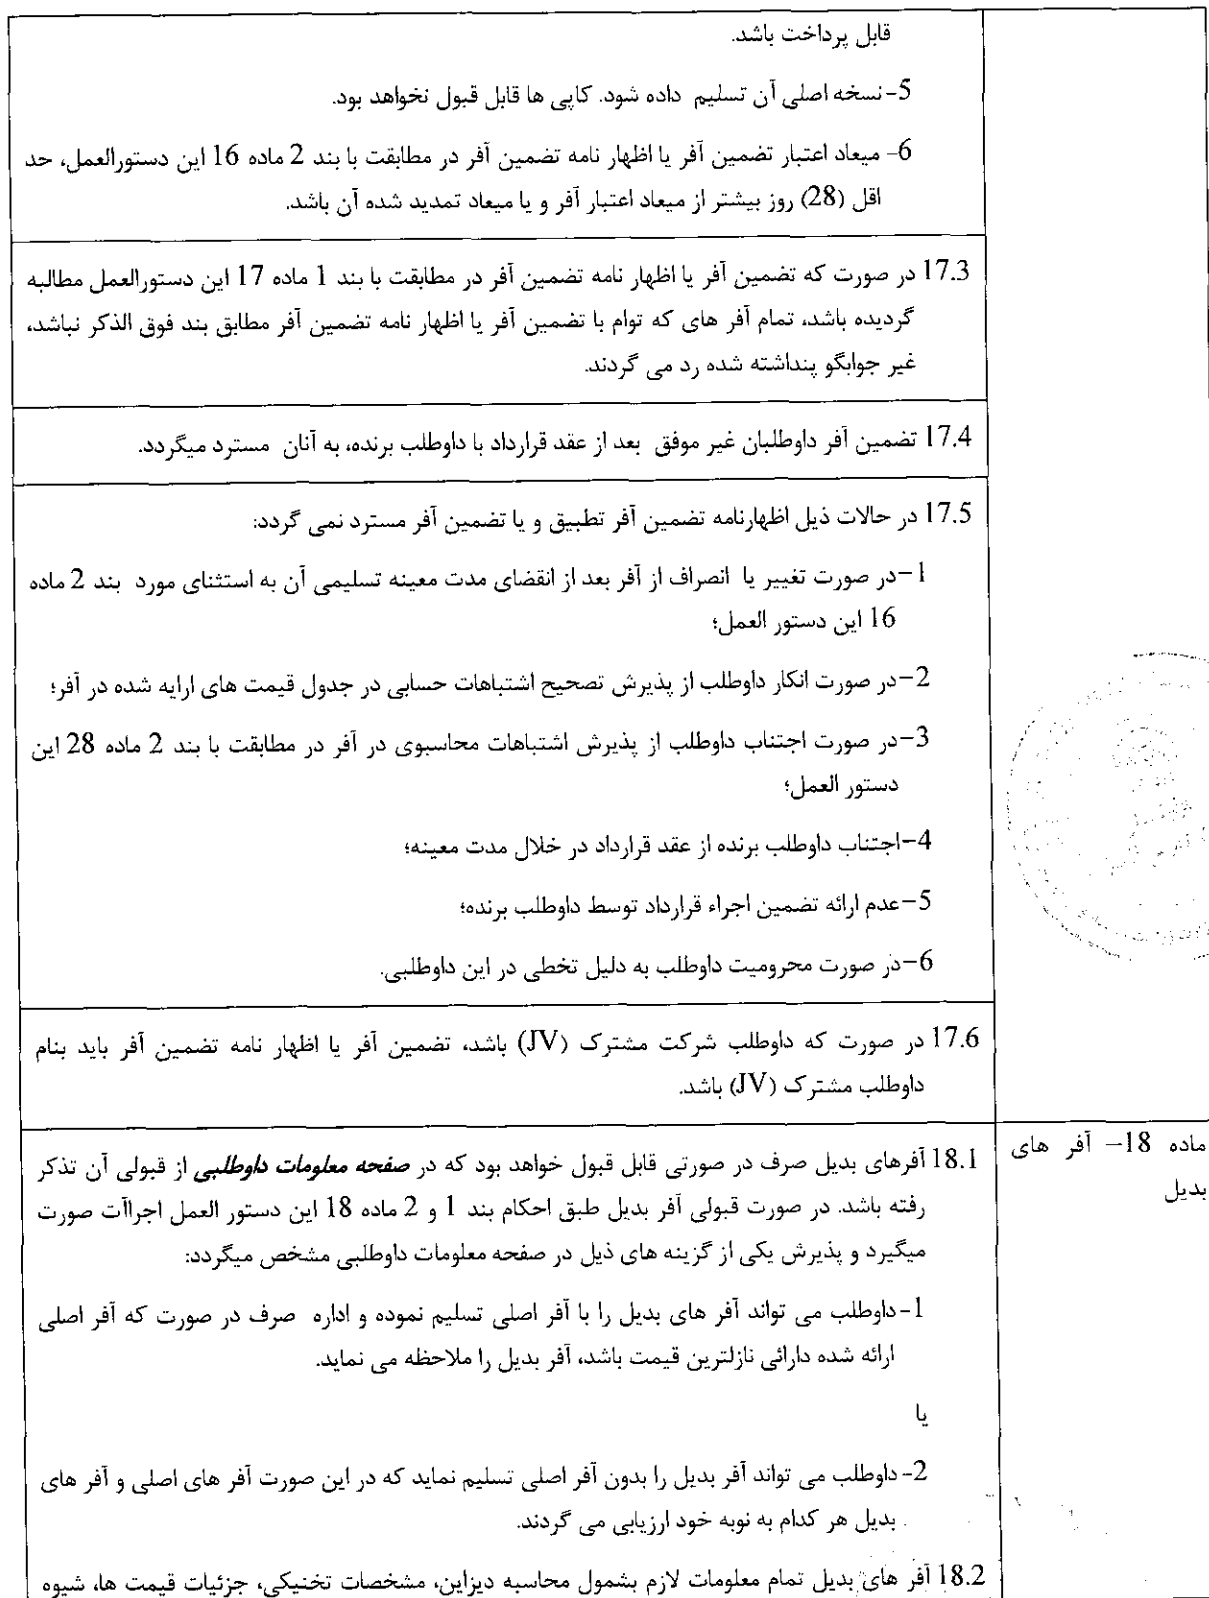 قابل پرداخت باشد.
5-نسخه اصلی آن تسلیم داده شود. کاپی ها قابل قبول نخواهد بود.
6- میعاد اعتبار تضمین آفر یا اظهار نامه تضمین آفر در مطابقت با بند 2 ماده 16 این دستورالعمل، حد
اقل (28) روز بیشتر از میعاد اعتبار آفر و یا میعاد تمدید شده آن باشد.
17.3 در صورت که تضمین آفر یا اظهار نامه تضمین آفر در مطابقت با بند 1 ماده 17 این دستورالعمل مطالبه
گردیده باشد، تمام آفر های که توام با تضمین آفر یا اظهار نامه تضمین آفر مطابق بند فوق الذکر نباشد،
غیر جوابگو پنداشته شده رد می گردند.
17.4 تضمین آفر داوطلبان غیر موفق بعد از عقد قرارداد با داوطلب برنده، به آنان مسترد میگردد.
17.5 در حالات ذیل اظهارنامه تضمین آفر تطبیق و یا تضمین آفر مسترد نمی گردد:
1-در صورت تغییر یا انصراف از آفر بعد از انقضای مدت معینه تسلیمی آن به استثنای مورد بند 2 ماده
16 این دستور العمل؛
2-در صورت انکار داوطلب از پذیرش تصحیح اشتباهات حسابی در جدول قیمت های ارایه شده در آفر؛
3-در صورت اجتناب داوطلب از پذیرش اشتباهات محاسبوی در آفر در مطابقت با بند 2 ماده 28 این
دستور العمل؛
4-اجتناب داوطلب برنده از عقد قرارداد در خلال مدت معینه؛
5-عدم ارائه تضمین اجراء قرارداد توسط داوطلب برنده؛
6-در صورت محرومیت داوطلب به دلیل تخطی در این داوطلبی.
17.6 در صورت که داوطلب شرکت مشترک (JV) باشد، تضمین آفر یا اظهار نامه تضمین آفر باید بنام
داوطلب مشترک (JV) باشد.
ماده 18- آفر های
بدیل
18.1 آفرهای بدیل صرف در صورتی قابل قبول خواهد بود که در صفحه معلومات داوطلبی از قبولی آن تذکر
رفته باشد. در صورت قبولی آفر بدیل طبق احکام بند 1 و 2 ماده 18 این دستور العمل اجراآت صورت
میگیرد و پذیرش یکی از گزینه های ذیل در صفحه معلومات داوطلبی مشخص میگردد:
1-داوطلب می تواند آفر های بدیل را با آفر اصلی تسلیم نموده و اداره صرف در صورت که آفر اصلی
ارائه شده دارائی نازلترین قیمت باشد، آفر بدیل را ملاحظه می نماید.
یا
2-داوطلب می تواند آفر بدیل را بدون آفر اصلی تسلیم نماید که در این صورت آفر های اصلی و آفر های
بدیل هر کدام به نوبه خود ارزیابی می گردند.
18.2 آفر های بدیل تمام معلومات لازم بشمول محاسبه دیزاین، مشخصات تخنیکی، جزئیات قیمت ها، شیوه